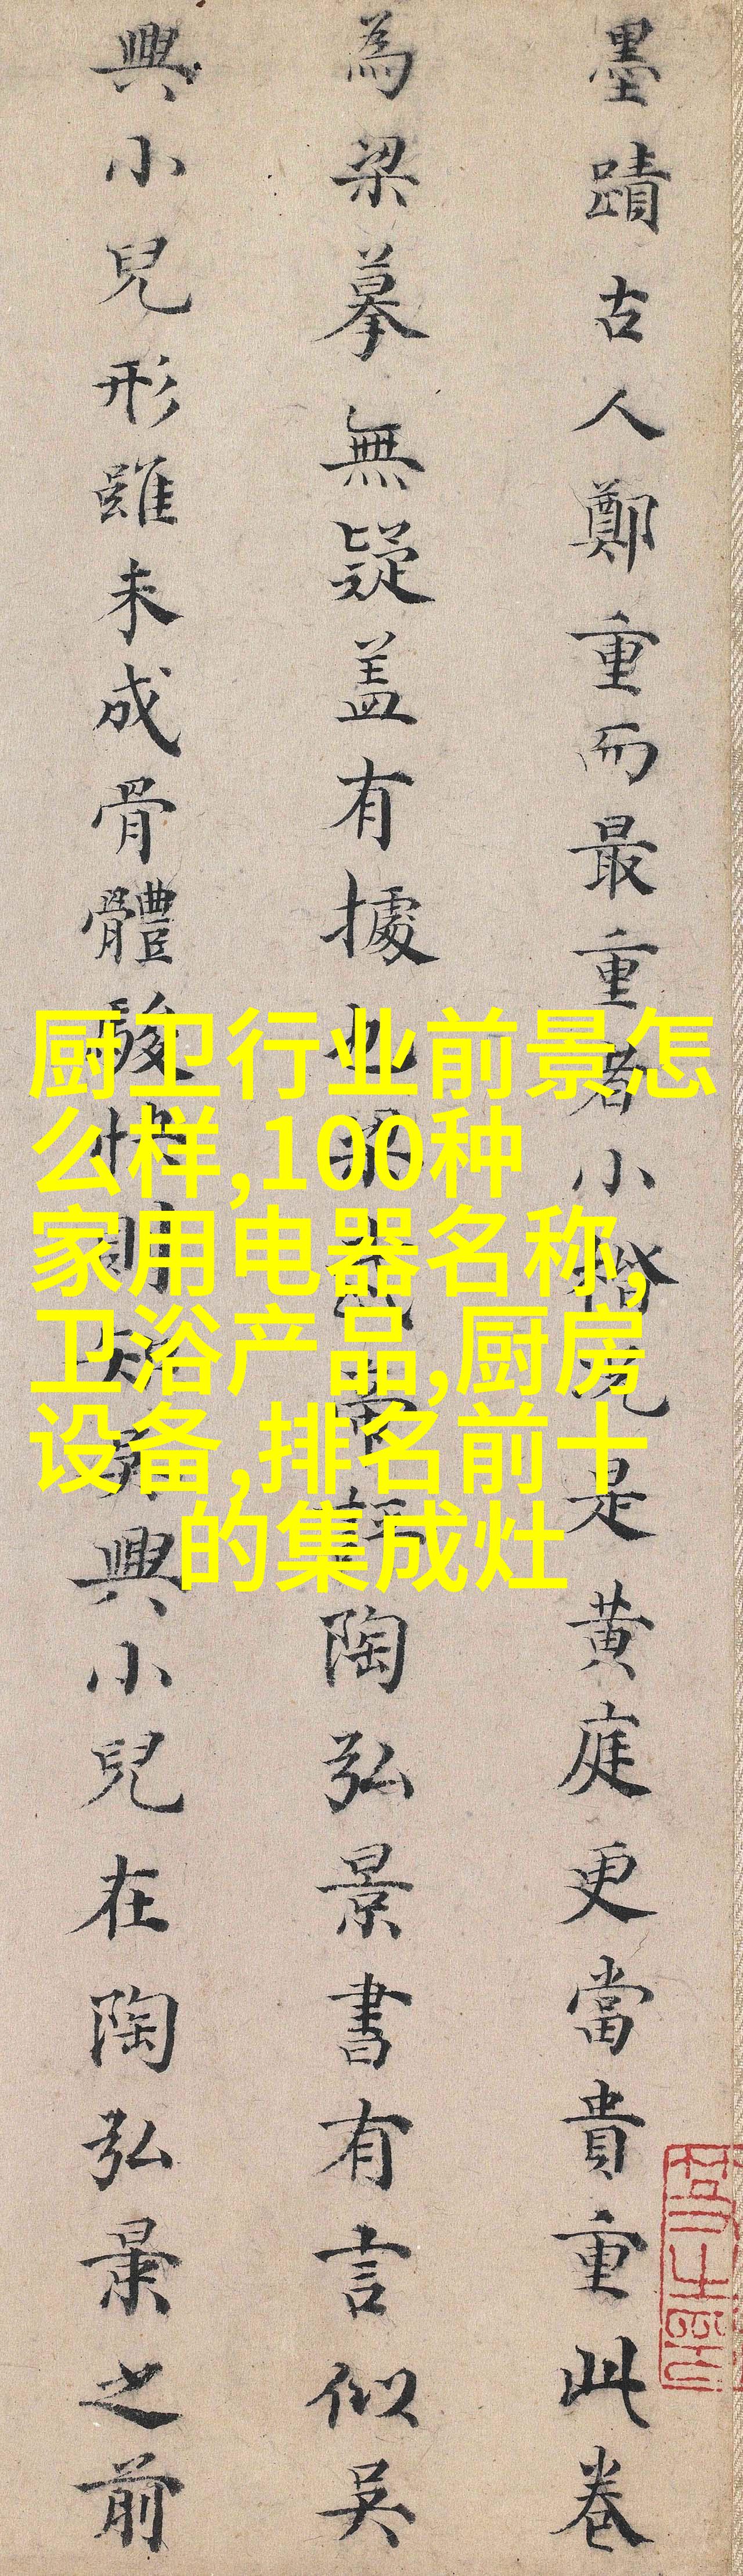 墨蹟古人鄭重而最重者小楷況是黄庭更當貴重此卷
為梁摹無疑蓋有據也梁武帝評陶弘景書有言似吴
興小兒形雖未成骨體駿快明知吴興小兒在陶弘景之前
厨卫行业前景怎
么样,100种
家用电器名称,
卫浴产品,厨房
设备,排名前十
的集成灶